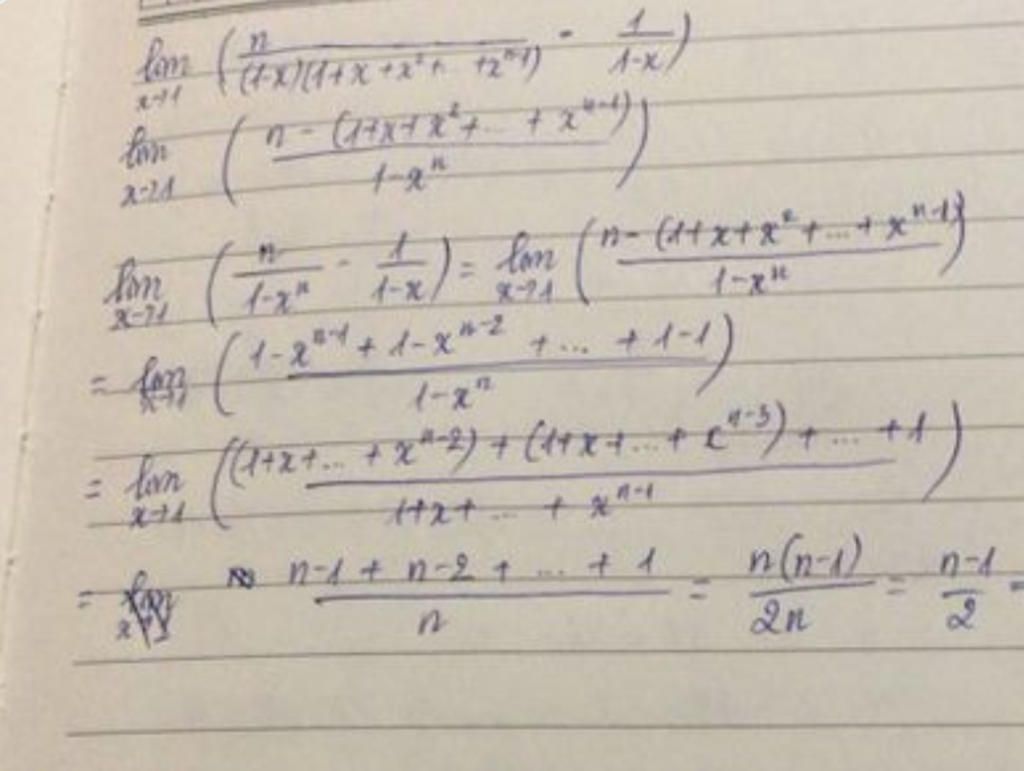 lim x→1 ( n / (1-x)(1+x+x²+...+xⁿ⁻¹) - 1 / 1-x )
lim x→1 ( n - (1+x+x²+...+xⁿ⁻¹) / 1-xⁿ )
lim x→1 ( n / 1-xⁿ - 1 / 1-x ) = lim x→1 ( n - (1+x+x²+...+xⁿ⁻¹) / 1-xⁿ )
= lim x→1 ( 1-xⁿ⁻¹ + 1-xⁿ⁻² + ... + 1-1 / 1-xⁿ )
= lim x→1 ( (1+x+...+xⁿ⁻²) + (1+x+...+xⁿ⁻³) + ... + 1 / 1+x+...+xⁿ⁻¹ )
= n-1 + n-2 + ... + 1 / n = n(n-1) / 2n = n-1 / 2 =